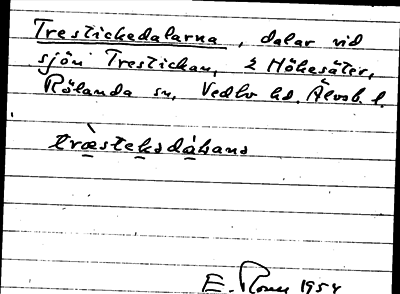 Trestickedalarna, dalar vid
sjön Trestickan, z Hökesäter,
Rölanda sn, Vedbo hd. Älvsb. l.
træsteksdàɫana
E. 1954